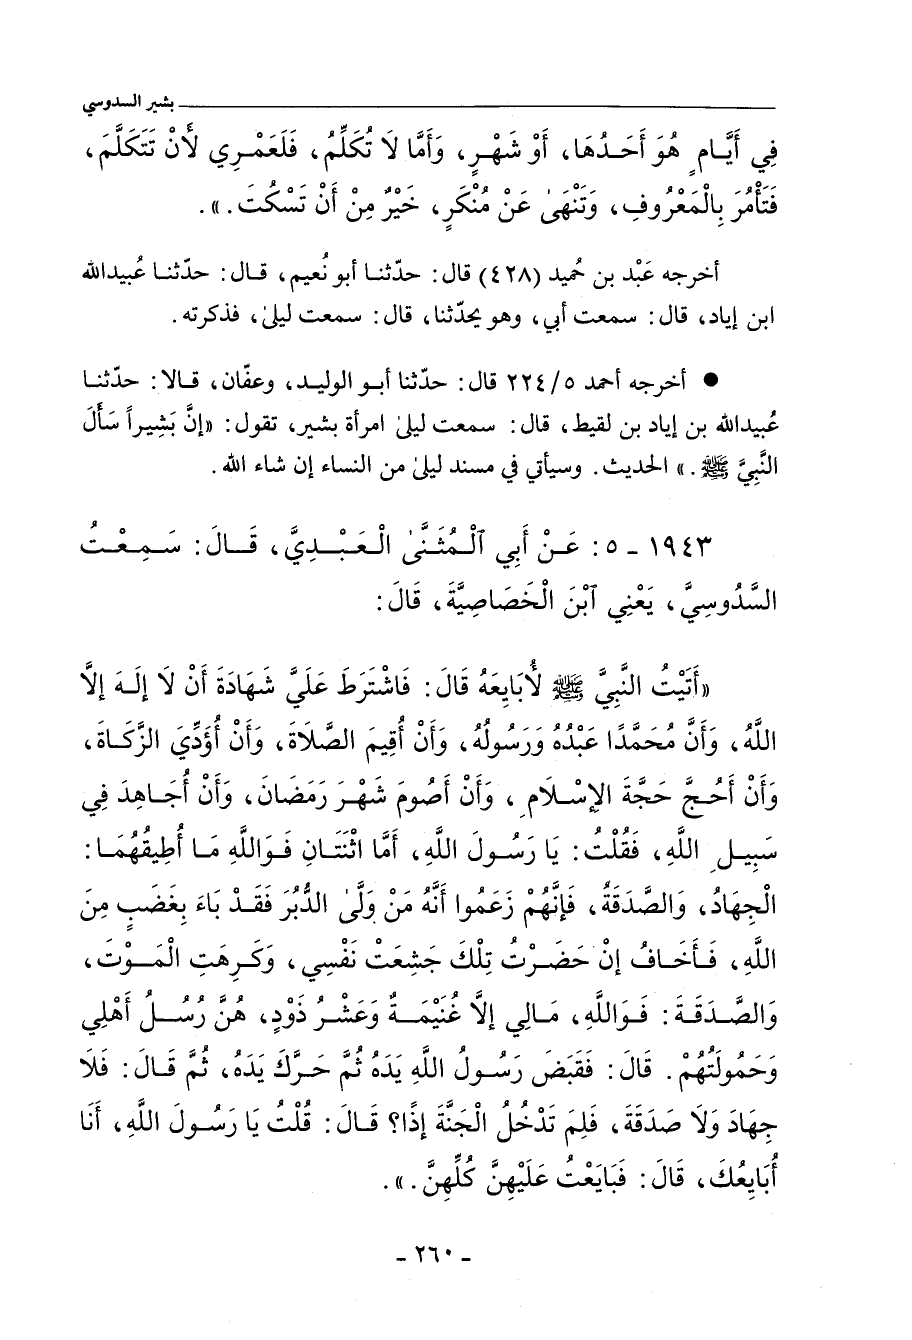 بشير السدوسي
فِي أَيَّامٍ هُوَ أَحَدُهَا، أَوْ شَهْرٍ، وَأَمَّا لَا تُكَلِّمُ، فَلَعَمْرِي لأَنْ تَتَكَلَّمَ،
فَتَأْمُرَ بِالْمَعْرُوفِ، وَتَنْهَىٰ عَنْ مُنْكَرٍ، خَيْرٌ مِنْ أَنْ تَسْكُتَ.».
أخرجه عَبْد بن حُميد (٤٢٨) قال: حدّثنا أبو نُعيم، قال: حدّثنا عُبيدالله
ابن إياد، قال: سمعت أبي، وهو يحدّثنا، قال: سمعت ليلىٰ، فذكرته.
● أخرجه أحمد ٥/ ٢٢٤ قال: حدّثنا أبو الوليد، وعفّان، قالا: حدّثنا
عُبيدالله بن إياد بن لقيط، قال: سمعت ليلىٰ امرأة بشير، تقول: «إنَّ بَشِيراً سَأَلَ
النَّبِيَّ ﷺ.» الحديث. وسيأتي في مسند ليلىٰ من النساء إن شاء الله.
١٩٤٣ - ٥: عَنْ أَبِي ٱلْمُثَنَّىٰ الْعَبْدِيَّ، قَالَ: سَمِعْتُ
السَّدُوسِيَّ، يَعْنِي ٱبْنَ الْخَصَاصِيَّةَ، قَالَ:
«أَتَيْتُ النَّبِيَّ ﷺ لأُبَايِعَهُ قَالَ: فَاشْتَرَطَ عَلَيَّ شَهَادَةَ أَنْ لَا إِلَهَ إِلاَّ
اللَّهُ، وَأَنَّ مُحَمَّدًا عَبْدُهُ وَرَسُولُهُ، وَأَنْ أُقِيمَ الصَّلَاةَ، وَأَنْ أُؤَدِّيَ الزَّكَاةَ،
وَأَنْ أَحُجَّ حَجَّةَ الإِسْلَامِ، وَأَنْ أَصُومَ شَهْرَ رَمَضَانَ، وَأَنْ أُجَاهِدَ فِي
سَبِيلِ اللَّهِ، فَقُلْتُ: يَا رَسُولَ اللَّهِ، أَمَّا اثْنَتَانِ فَوَاللَّهِ مَا أُطِيقُهُمَا:
الْجِهَادُ، وَالصَّدَقَةُ، فَإِنَّهُمْ زَعَمُوا أَنَّهُ مَنْ وَلَّىٰ الدُّبُرَ فَقَدْ بَاءَ بِغَضَبٍ مِنَ
اللَّهِ، فَأَخَافُ إِنْ حَضَرْتُ تِلْكَ جَشِعَتْ نَفْسِي، وَكَرِهَتِ الْمَوْتَ،
وَالصَّدَقَةَ: فَوَاللَّهِ، مَالِي إِلاَّ غُنَيْمَةٌ وَعَشْرُ ذَوْدٍ، هُنَّ رُسُلُ أَهْلِي
وَحَمُولَتُهُمْ. قَالَ: فَقَبَضَ رَسُولُ اللَّهِ يَدَهُ ثُمَّ حَرَّكَ يَدَهُ، ثُمَّ قَالَ: فَلَا
جِهَادَ وَلَا صَدَقَةَ، فَلِمَ تَدْخُلُ الْجَنَّةَ إِذًا؟ قَالَ: قُلْتُ يَا رَسُولَ اللَّهِ، أَنَا
أُبَايِعُكَ، قَالَ: فَبَايَعْتُ عَلَيْهِنَّ كُلِّهِنَّ.».
- ٢٦٠ -